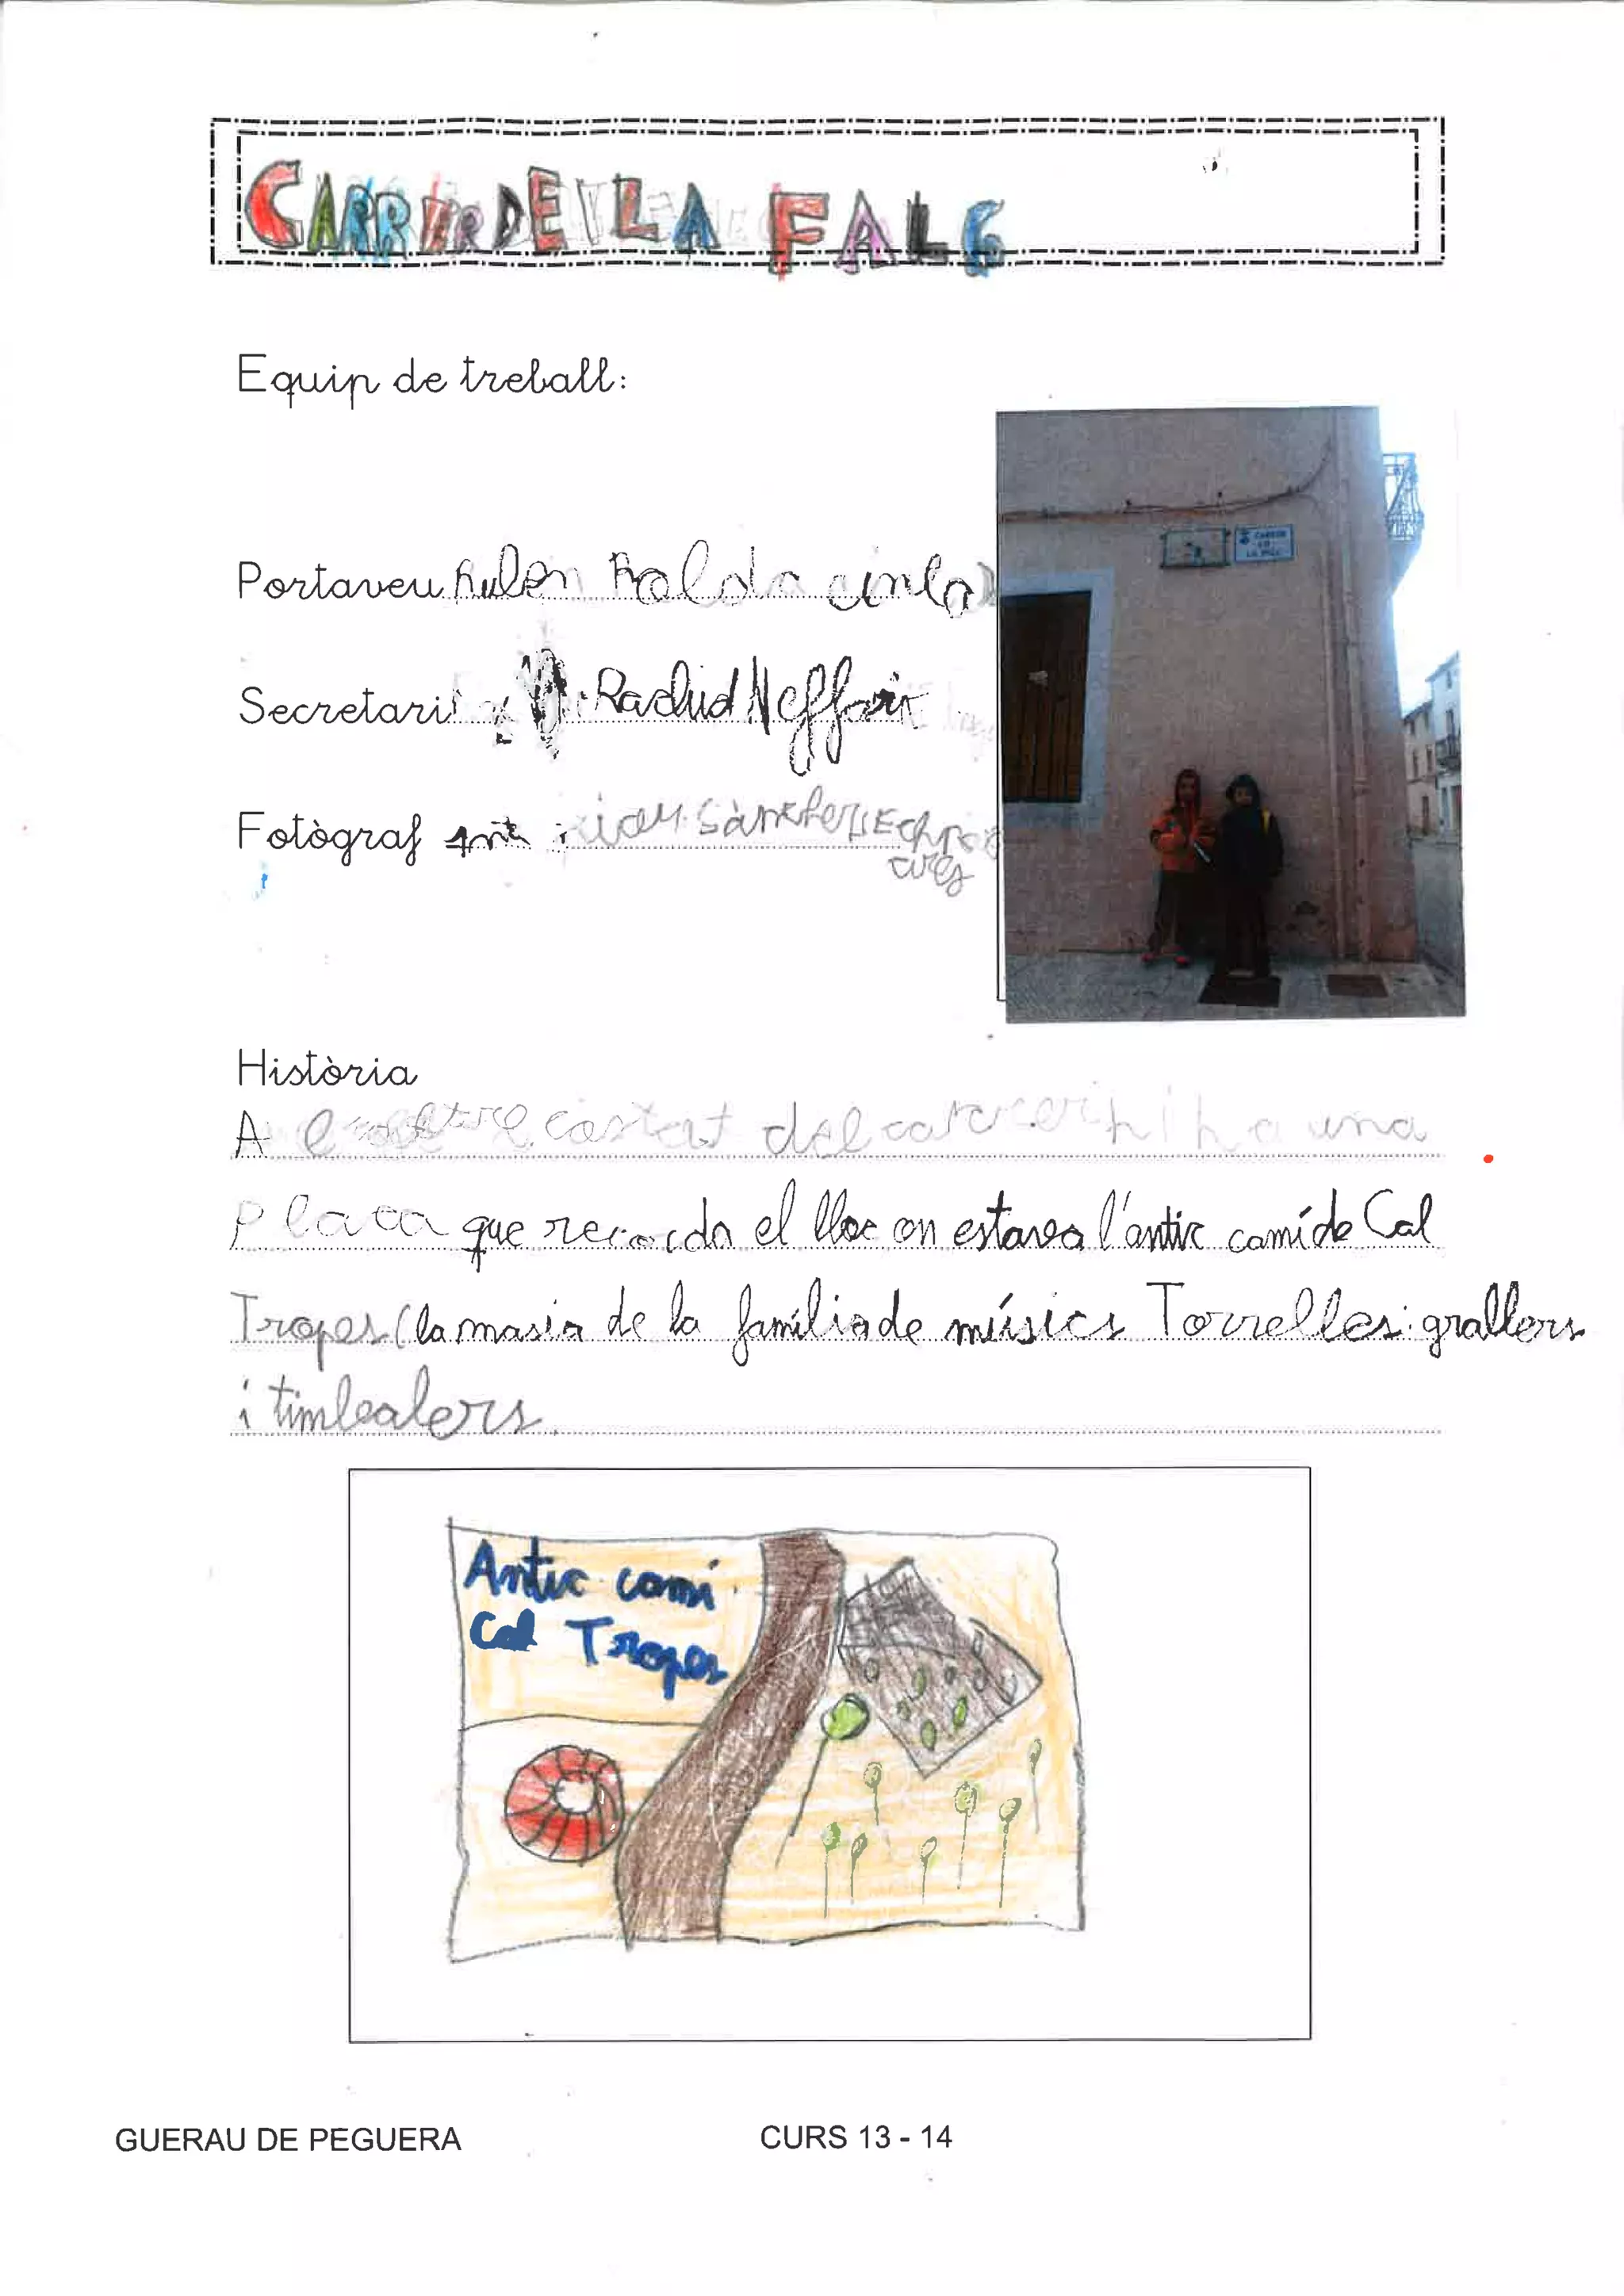 CARRER DE LA FALÇ
Equip de treball:
CARRER
DE
LA
Portaveu
Secretari Rachid Neffair
Fotògraf Sànchez
Història
A l costat del carrer hi ha una
Placa que recorda el lloc on estava l'antic camí de Cal
Tropes (la masia de la família de músics Torrelles: grallers
i timbalers.
Antic camí
Cal Tropes
GUERAU DE PEGUERA CURS 13 - 14